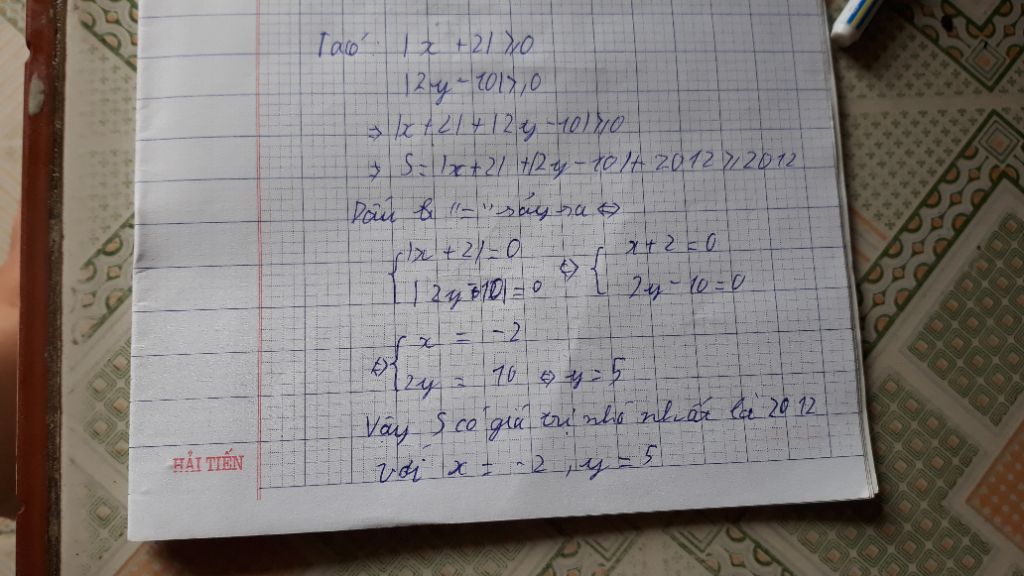 Ta có: |x + 2| ≥ 0
|2y - 10| ≥ 0
⇒ |x + 2| + |2y - 10| ≥ 0
⇒ S = |x + 2| + |2y - 10| + 2012 ≥ 2012
Dấu "=" xảy ra ⇔
{ |x + 2| = 0 ⇔ { x + 2 = 0
|2y - 10| = 0 2y - 10 = 0
⇔ { x = -2
2y = 10 ⇔ y = 5
Vậy S có giá trị nhỏ nhất là 2012
với x = -2, y = 5
HẢI TIẾN